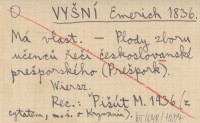 VYŠNÍ Emerich 1836.
Má vlast. – Plody zboru
učenců řeči československé
prešporského (Prešpork).
Wiersz.
Rec.: Pišút M. 1936 (z
cytatem, m.